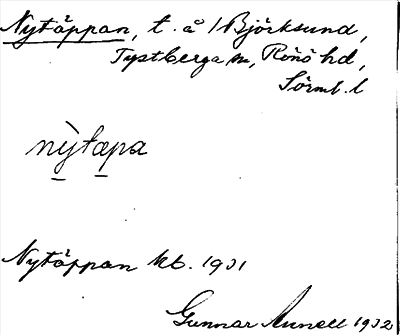 Nytäppan, t. å /Björksund,
Tystberga sn, Rönö hd,
Sörml. l
nỳtæpa
Nytäppan kb. 1931
Gunnar Arnell 1932